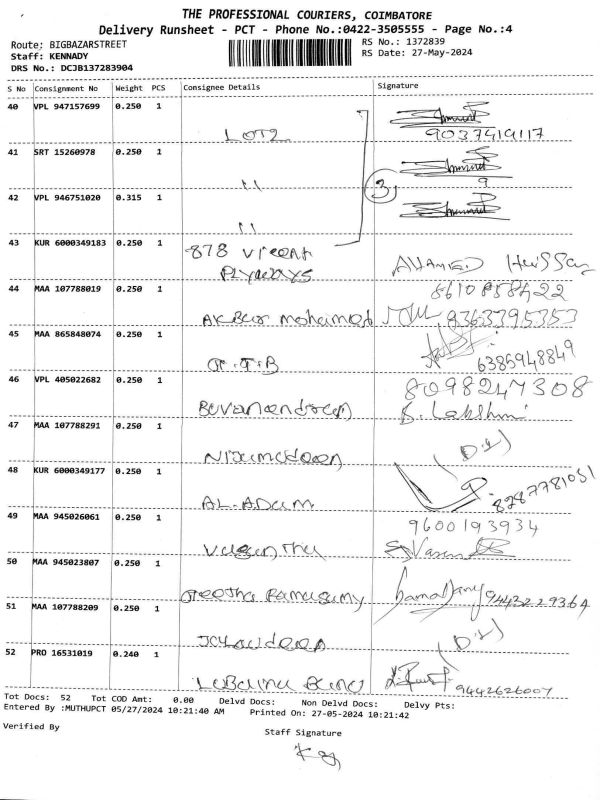 THE PROFESSIONAL COURIERS, COIMBATORE
Delivery Runsheet - PCT - Phone No.:0422-3505555 - Page No.:4
Route: BIGBAZARSTREET RS No.: 1372839
Staff: KENNADY RS Date: 27-May-2024
DRS No.: DCJB137283904
S No Consignment No Weight PCS Consignee Details Signature
40 VPL 947157699 0.250 1
LOT2 9037919117
41 SRT 15260978 0.250 1
" 9
42 VPL 946751020 0.315 1 3
"
43 KUR 6000349183 0.250 1 878
Plyways AHAMED
44 MAA 107788019 0.250 1 8610858422
Akbar mohamed 9363395353
45 MAA 865848074 0.250 1
6385948849
46 VPL 405022682 0.250 1 8098247308
Buvanendran B. Lakshmi
47 MAA 107788291 0.250 1
Nijamudeen
48 KUR 6000349177 0.250 1
AL. Adam 8287781051
49 MAA 945026061 0.250 1 9600193934
Vasantha
50 MAA 945023807 0.250 1
Geetha Ramasamy 9443229364
51 MAA 107788209 0.250 1
52 PRO 16531019 0.240 1
Lubaina Banu 9442626007
Tot Docs: 52 Tot COD Amt: 0.00 Delvd Docs: Non Delvd Docs: Delvy Pts:
Entered By :MUTHUPCT 05/27/2024 10:21:40 AM Printed On: 27-05-2024 10:21:42
Verified By Staff Signature